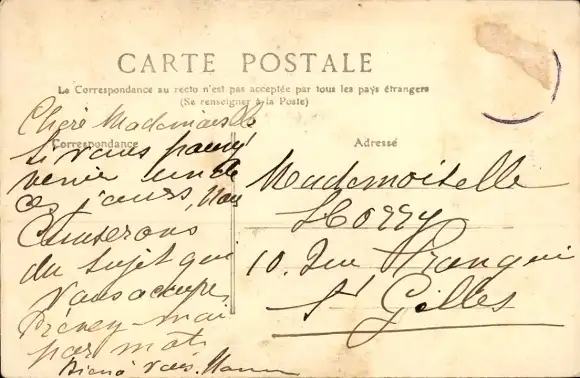 CARTE POSTALE
La Correspondance au recto n'est pas acceptée par tous les pays étrangers
(Se renseigner à la Poste)
Correspondance
Adresse
Chère Mademoiselle
Si vous pouvez
venir un de
ces jours, nous
Causerons
du Sujet qui
vous occupe,
Prévenez-moi
par mot
Bien à vous.
Mademoiselle
10, Rue
St Gilles